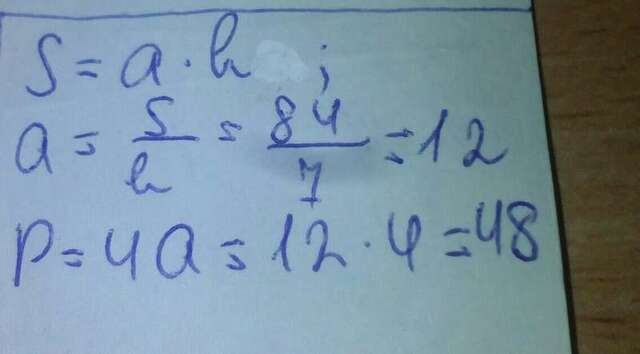 S = a · h ;
a = S/h = 84/7 = 12
P = 4a = 12 · 4 = 48